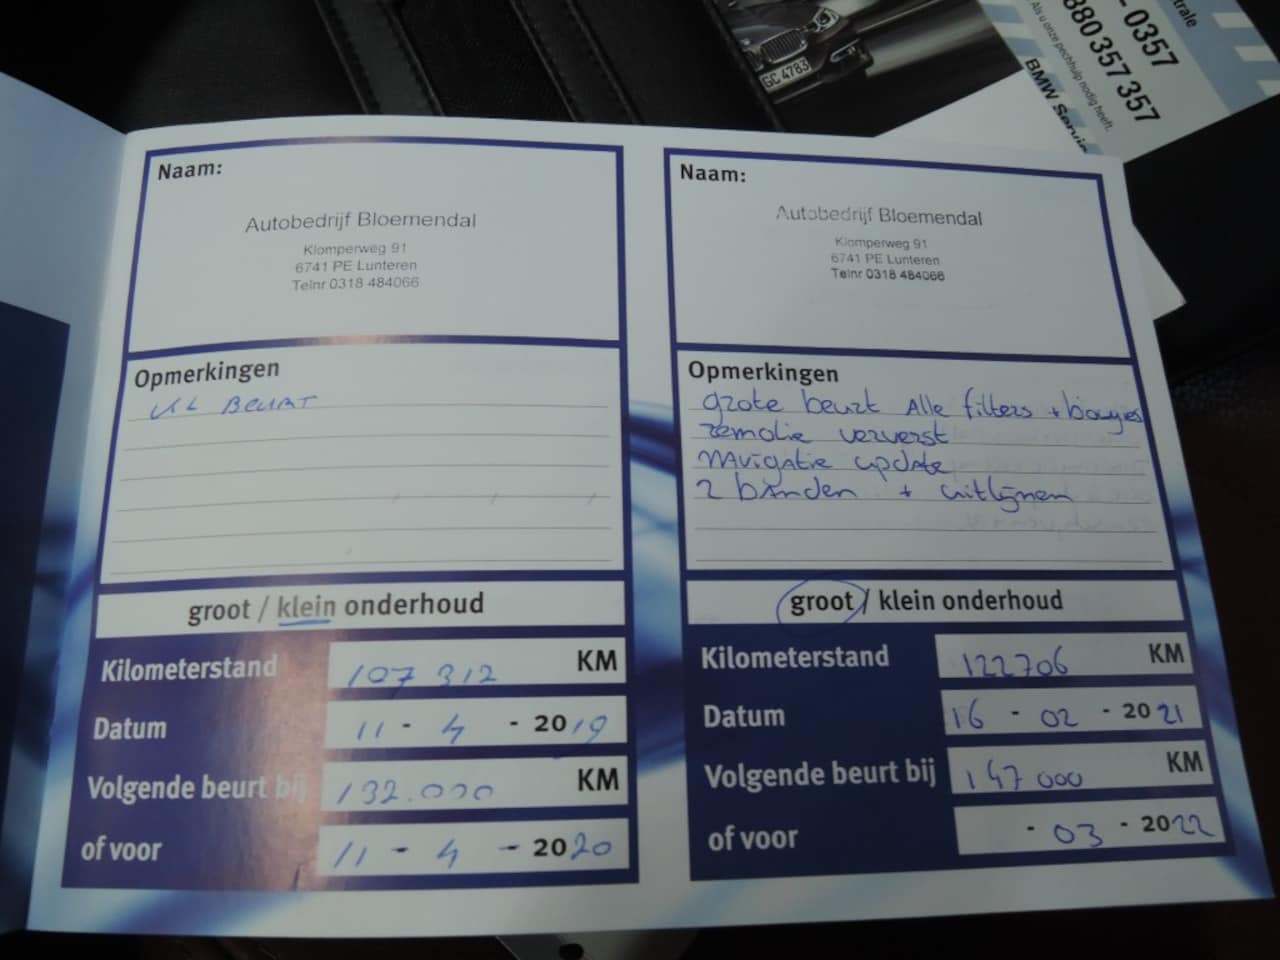 GC 4783
- 0357
880 357 357
Als u onze pechhulp nodig heeft.
BMW Servic
Naam:
Autobedrijf Bloemendal
Klomperweg 91
6741 PE Lunteren
Telnr 0318 484066
Opmerkingen
KL BEURT
groot / klein onderhoud
Kilometerstand 107 312 KM
Datum 11 - 4 - 2019
Volgende beurt bij 132.000 KM
of voor 11 - 4 - 2020
Naam:
Autobedrijf Bloemendal
Klomperweg 91
6741 PE Lunteren
Telnr 0318 484066
Opmerkingen
grote beurt Alle filters + bougies
remolie ververst
navigatie update
2 banden + uitlijnen
groot / klein onderhoud
Kilometerstand 122706 KM
Datum 16 - 02 - 2021
Volgende beurt bij 147000 KM
of voor - 03 - 2022